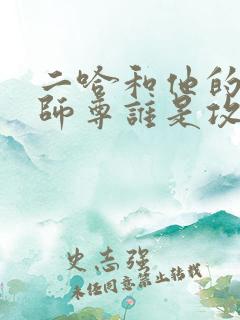 二哈和他的
師尊誰是攻
史志强
未经同意禁止转载